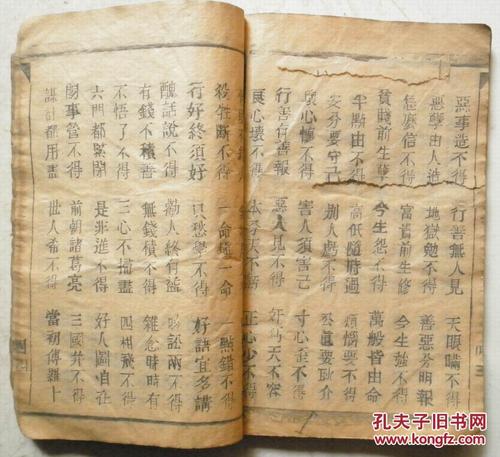 惡事造不得 行善無人見 天眼瞞不得
惡孽由人造 地獄勉不得 善惡分明報
怎麼信不得 富貴前生修 今生強不得
貧賤前生孽 今生怨不得 萬般皆由命
半點由不得 高低隨時過 煩惱要不得
安分要守己 別人虧不得 公直要耿介
良心 不得 害人須害己 寸心歪不得
行善有善報 惡人見不得 奸巧天不容
良心壞不得 天不 正心少不得
牲斷不得 一命填一命 一點錯不得
行好終須好 只愁學不得 好話宜多講
醜話說不得 勸人終有益 訟兩不得
有錢不積善 無錢積不得 雜念時時有
不悟了不得 三心不掃盡 四相飛不得
六門都緊閉 是非進不得 好人圖自在
閑事管不得 前朝諸葛亮 三國弄不得
謀計都用盡 世人希不得 當初傅羅卜
孔夫子旧书网
www.kongfz.com